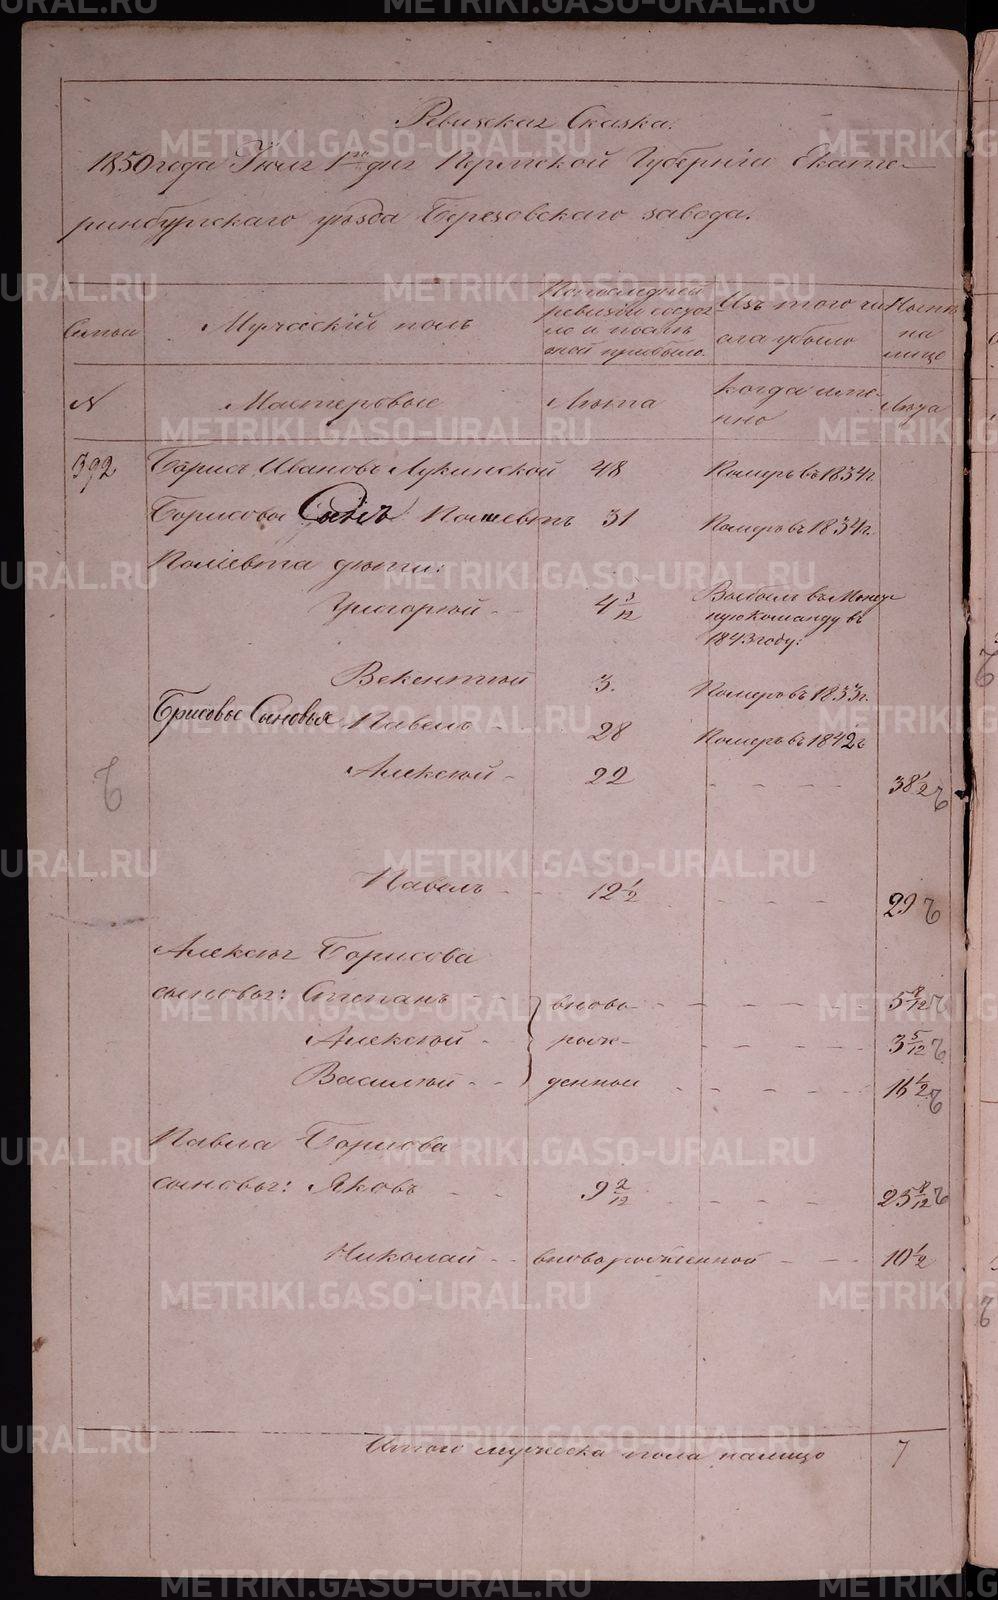 Ревизская Сказка.
1850 года Июля 1го дня Пермской Губернiи Екате-
ринбургскаго уѣзда Березовскаго завода.
Семьи
Мужескiй полъ
По последней ревизiи состояло и послѣ
оной прибыло.
Изъ того чи
сла убыло
Нынѣ
на
лице
N
Мастеровые
Лѣта
когда име-
нно
Лѣта
392 Борисъ Ивановъ Лукинской 48 Померъ въ 1834г.
Борисова Сынъ Полиевктъ 31 Померъ въ 1834г.
Полiевкта дѣти:
Григорiй - - 4 3/12 Выбылъ въ
ную команду въ
1843 году.
Векентiй 3. Померъ въ 1833г.
Брисовые Сыновья Павелъ - 28 Померъ въ 1842г
Алексѣй - 22 - - - - 38 1/2
Павелъ - - 12 1/2 - - - - 29
Алексѣя Борисова
сыновья: Степанъ - - вновь - - - - - 5 8/12
Алексѣй - - рож- - - - - 3 5/12
Василiй - - денныи - - - - 16 1/2
Павла Борисова
сыновья: Яковъ - - 9 2/12 - - - - 25 8/12
Николай - - вноворожденной - - - 10 1/2
Итого мужеска пола налицо 7
METRIKI.GASO-URAL.RU